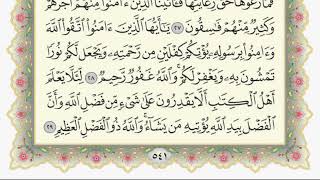 فَمَا رَعَوْهَا حَقَّ رِعَايَتِهَا فَـَٔاتَيْنَا ٱلَّذِينَ ءَامَنُوا۟ مِنْهُمْ أَجْرَهُمْ
وَكَثِيرٌ مِّنْهُمْ فَٰسِقُونَ ۝٢٧ يَٰٓأَيُّهَا ٱلَّذِينَ ءَامَنُوا۟ ٱتَّقُوا۟ ٱللَّهَ
وَءَامِنُوا۟ بِرَسُولِهِۦ يُؤْتِكُمْ كِفْلَيْنِ مِن رَّحْمَتِهِۦ وَيَجْعَل لَّكُمْ نُورًا
تَمْشُونَ بِهِۦ وَيَغْفِرْ لَكُمْ ۚ وَٱللَّهُ غَفُورٌ رَّحِيمٌ ۝٢٨ لِّئَلَّا يَعْلَمَ
أَهْلُ ٱلْكِتَٰبِ أَلَّا يَقْدِرُونَ عَلَىٰ شَىْءٍ مِّن فَضْلِ ٱللَّهِ ۙ وَأَنَّ
ٱلْفَضْلَ بِيَدِ ٱللَّهِ يُؤْتِيهِ مَن يَشَآءُ ۚ وَٱللَّهُ ذُو ٱلْفَضْلِ ٱلْعَظِيمِ ۝٢٩
٥٤١